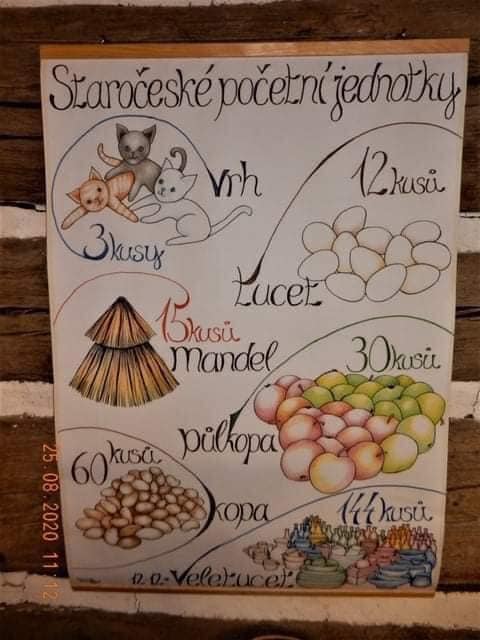 Staročeské početní jednotky
vrh
3 kusy
12 kusů
tucet
15 kusů
mandel
30 kusů
půlkopa
60 kusů
kopa
144 kusů
12·12 = Veletucet
25.08.2020 11:12